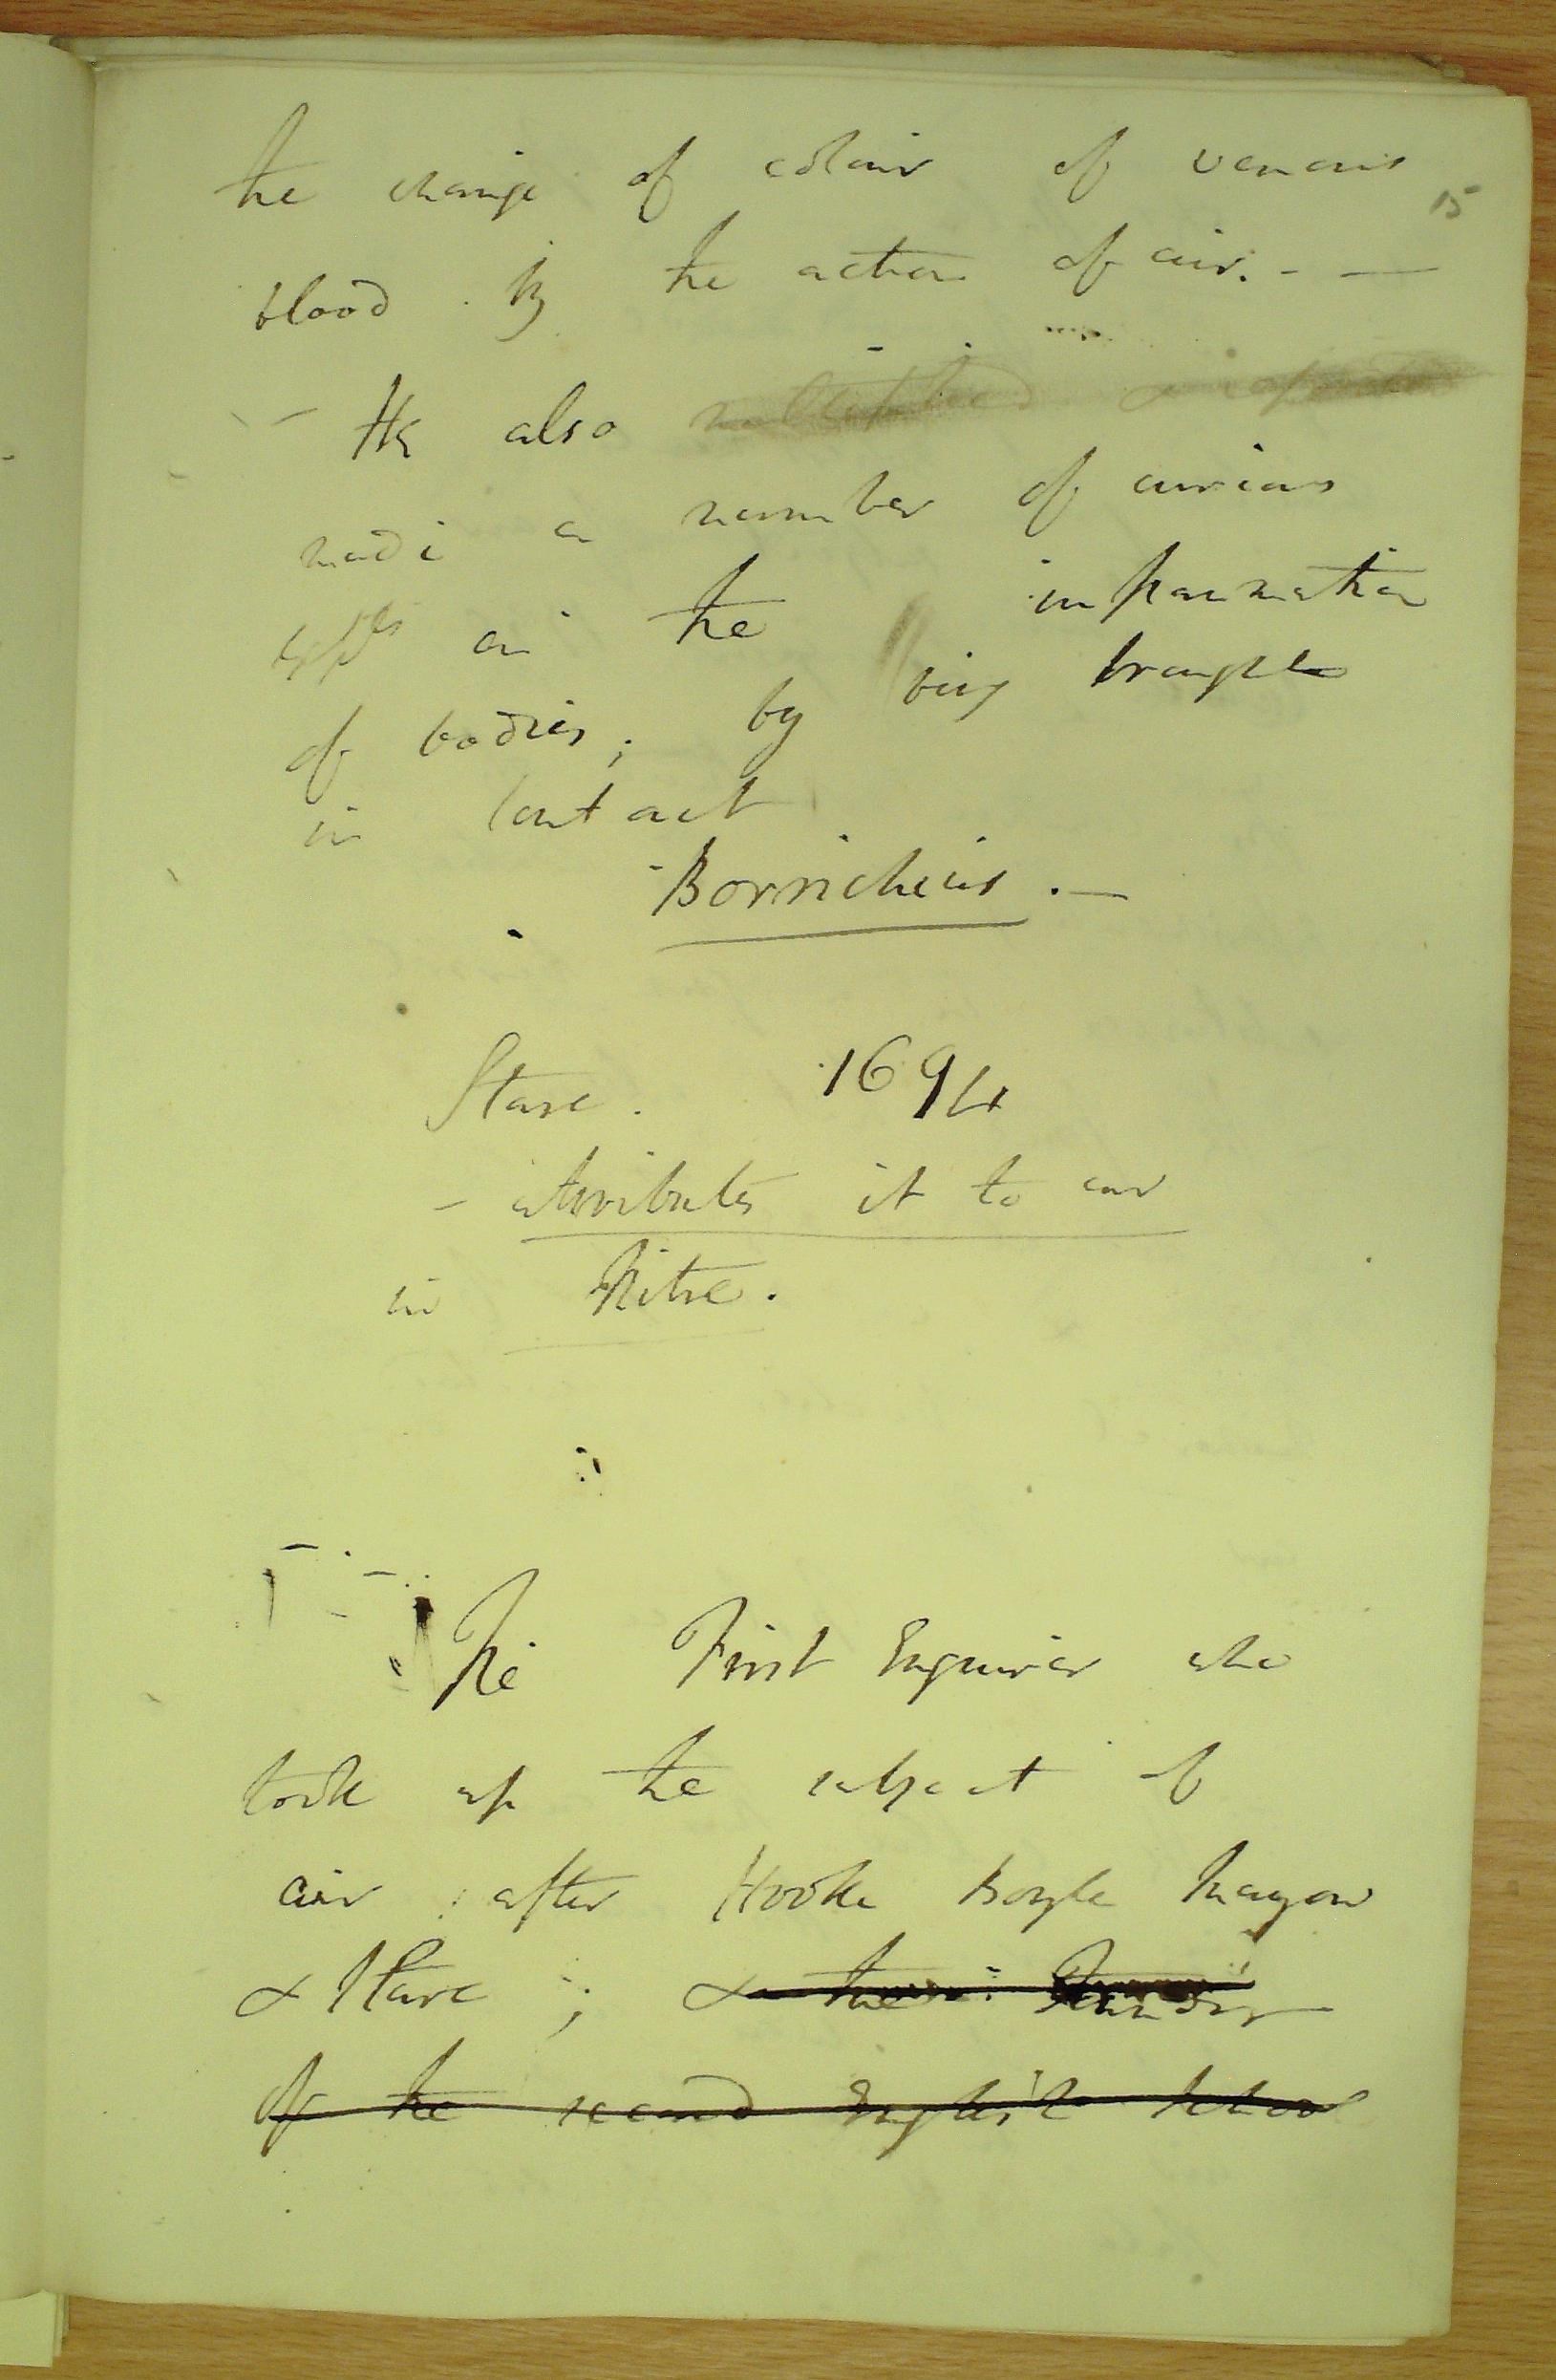 the change of colour of venous
15
blood by the action of air. - —
- He also multiplied &
made a number of curious
expts on the inflammation
of bodies; by being brought
in contact
Borrichius. —
Slare. 1694
- atributes it to air
in Nitre.
The First Enquirer who
took up the subject of
air after Hooke Boyle Mayow
& Slare; & the Founder
of the second English School